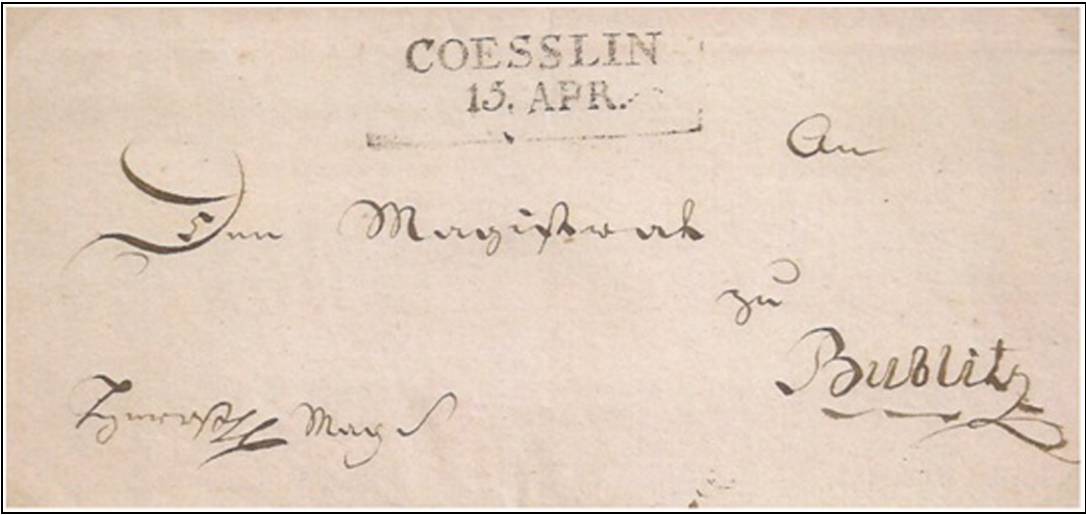 COESSLIN
15. APR.
An
Den Magistrat
zu
Bublitz
Mag